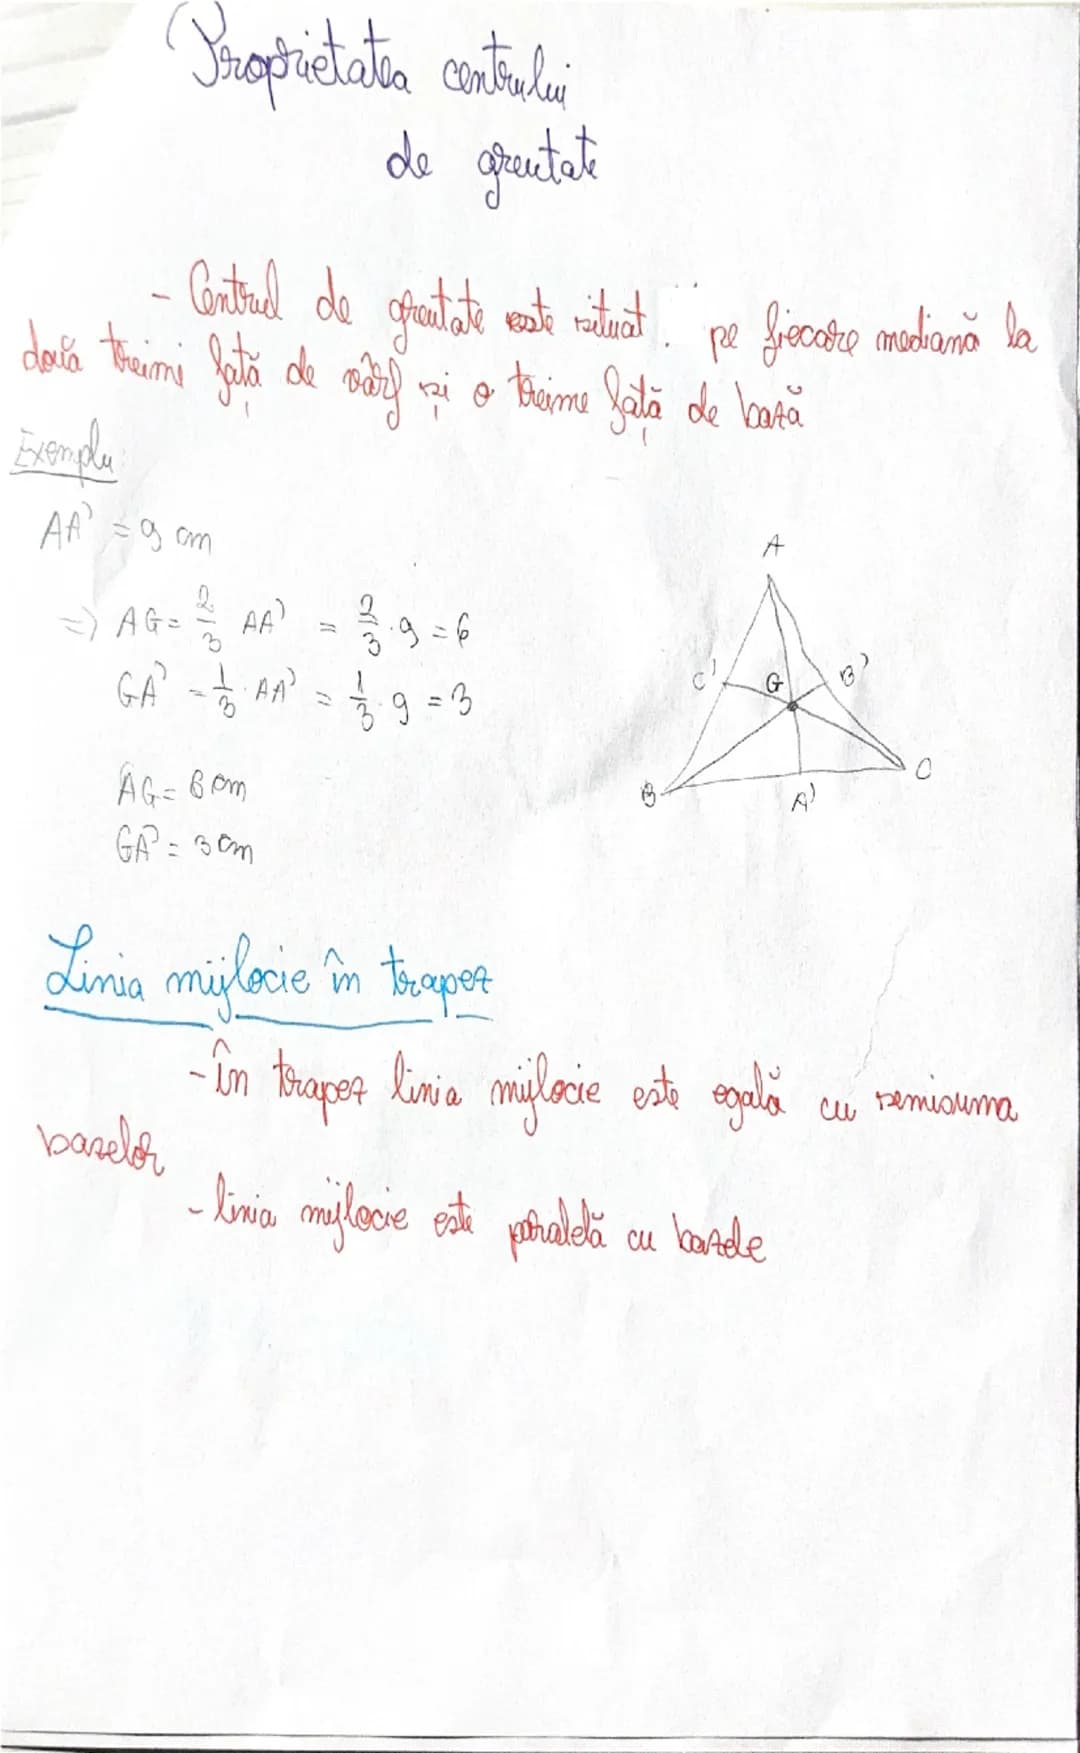 Proprietatea centrului
de greutate
- Centrul de greutate este situat pe fiecare mediană la
două treimi față de vârf și o treime față de bază
Exemplu:
AA' = 9 cm
=> AG = 2/3 AA' = 2/3 · 9 = 6
GA' = 1/3 · AA' = 1/3 · 9 = 3
AG = 6 cm
GA' = 3 cm
A
C'
G
B'
B
A'
C
Linia mijlocie în trapez
- În trapez linia mijlocie este egală cu semisuma
bazelor
- linia mijlocie este paralelă cu bazele